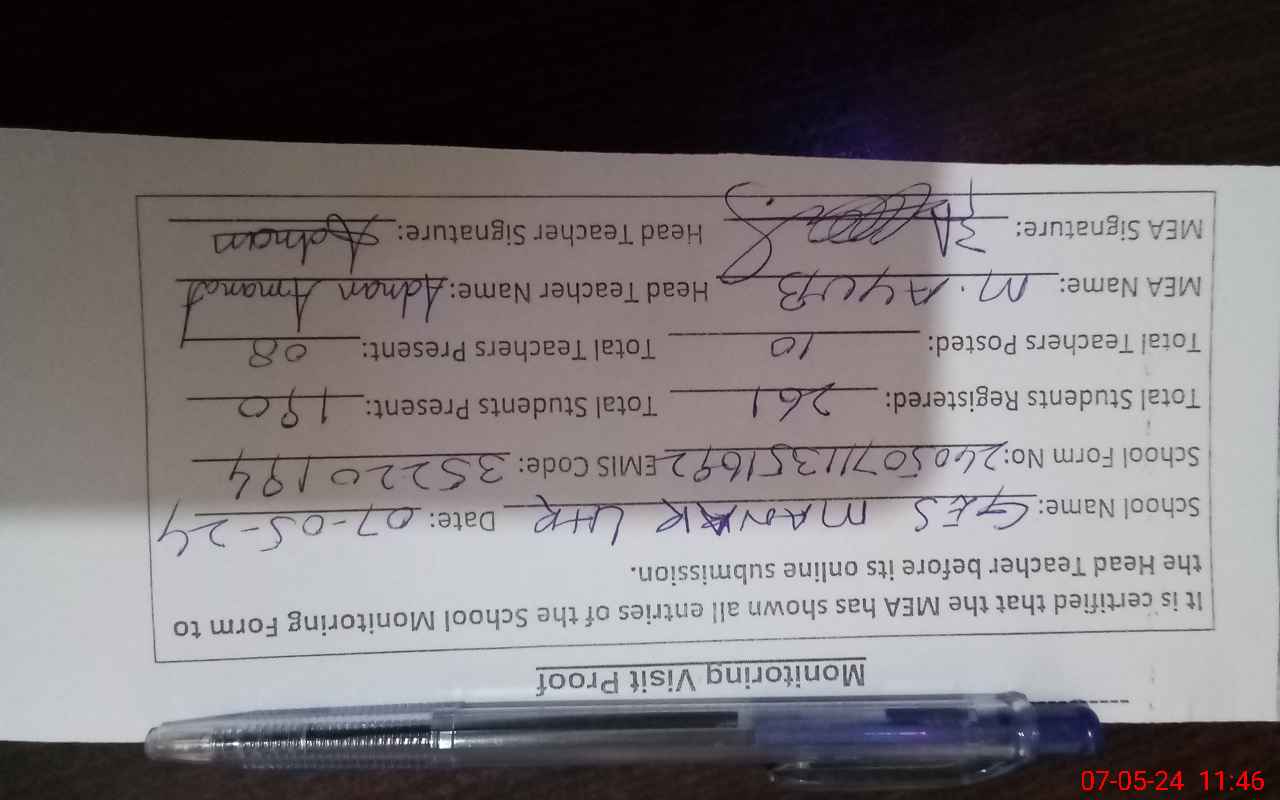 Monitoring Visit Proof
It is certified that the MEA has shown all entries of the School Monitoring Form to
the Head Teacher before its online submission.
School Name: GES MANAK LHR Date: 07-05-24
School Form No: 24050711351692 EMIS Code: 35220194
Total Students Registered: 261 Total Students Present: 190
Total Teachers Posted: 10 Total Teachers Present: 08
MEA Name: M. AYUB Head Teacher Name: Adnan Amanat
MEA Signature: Head Teacher Signature: Adnan
07-05-24 11:46